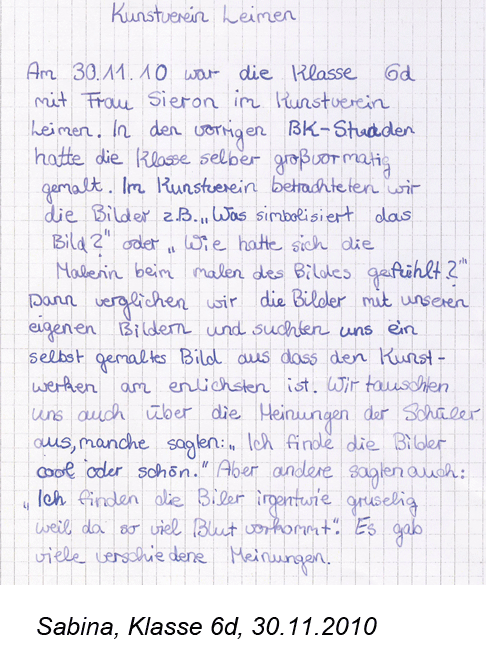 Kunstverein Leimen
Am 30.11.10 war die Klasse 6d
mit Frau Sieron im Kunstverein
Leimen. In den vorrigen BK-Stunden
hatte die Klasse selber großvormatig
gemalt. Im Kunstverein betrachteten wir
die Bilder z.B. „Was simbolisiert das
Bild?" oder „Wie hatte sich die
Malerin beim malen des Bildes gefühlt?"
Dann verglichen wir die Bilder mit unseren
eigenen Bildern und suchten uns ein
selbst gemaltes Bild aus dass den Kunst-
werken am enlichsten ist. Wir tauschten
uns auch über die Meinungen der Schüler
aus, manche sagten: „Ich finde die Bilder
cool oder schön." Aber andere sagten auch:
„Ich finden die Biler irgentwie gruselig
weil da so viel Blut vorkommt". Es gab
viele verschiedene Meinungen.
Sabina, Klasse 6d, 30.11.2010